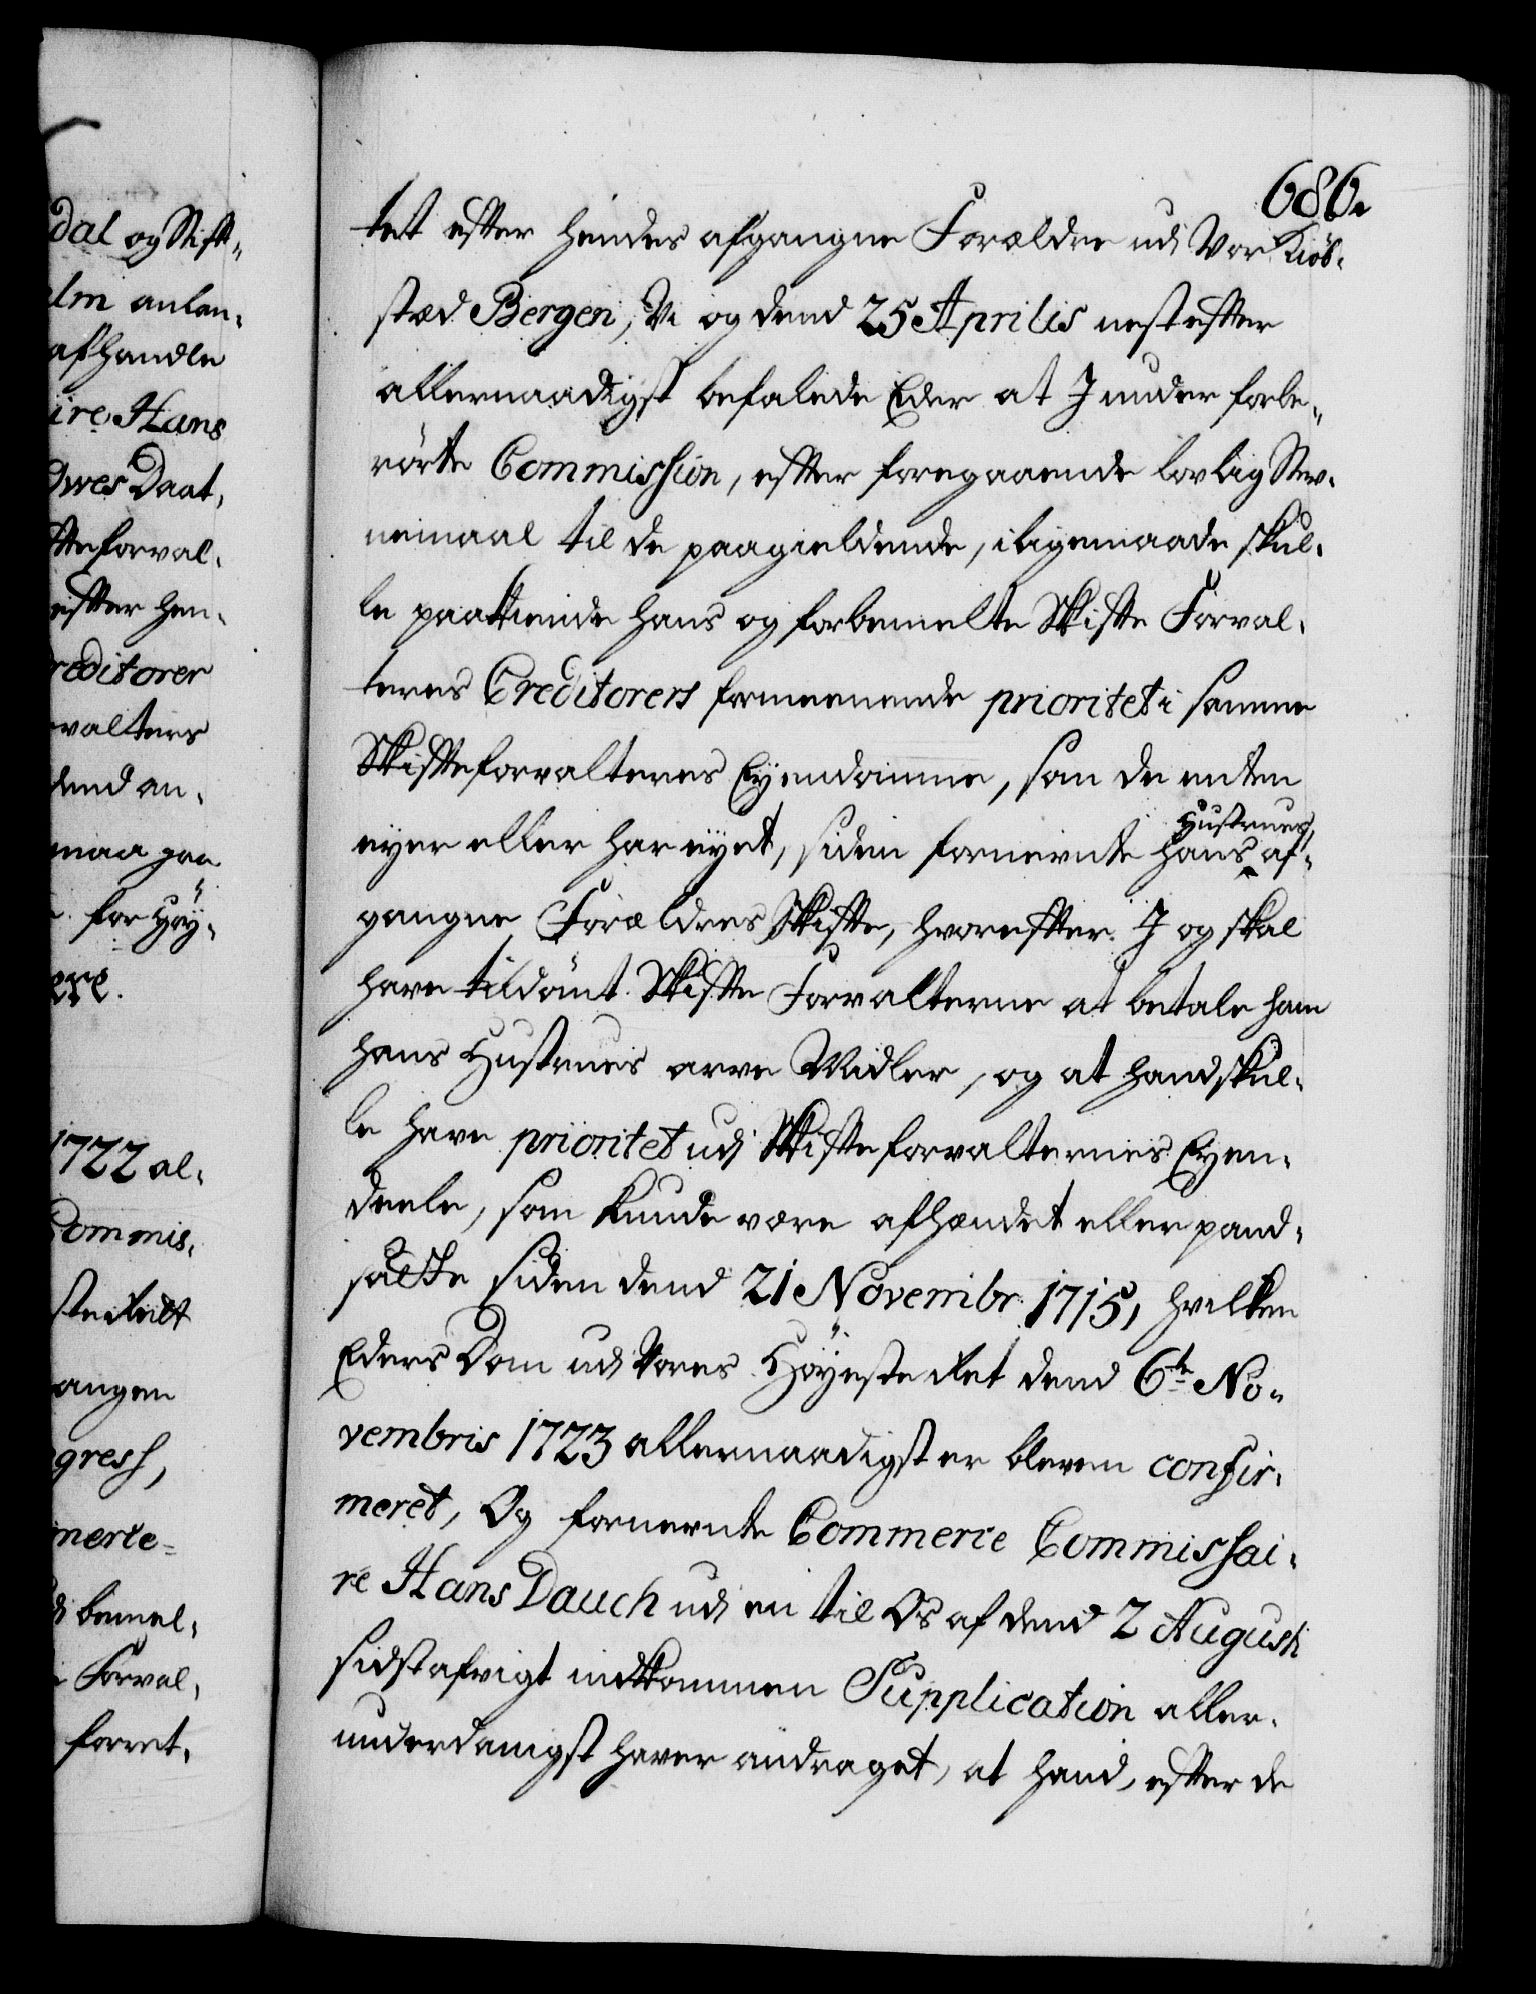 dal og Stift-
elm anlan-
afhandle
ire Hans
Dwes Daat-
tteforval-
efter hen-
reditorer
valters
dend an-
maa paa
for Høy-
1722 al-
Commis-
angen
gress,
merce-
bemel-
Forval-
forret-
686.
tet efter hendes afgangne Forældre udj Vor Kiøb-
stæd Bergen, Vi og dend 25 Aprilis nestefter
allernaadigst befalede Eder at I under forbe-
rörte Commission, efter foregaaende lovlig Stev-
nemaal til de paagieldende, iligemaade skul-
le paakiende hans og forbemelte Skifte Forval-
teres Creditorers formeenende prioritet i samme
Skifteforvalteres Eyendomme, som de enten
eyer eller har eyet, siden fornevnte hans Hustrues af-
gangne Forældres Skifte, hvorefter I og skal
have tildömt Skifte Forvalterne at betale ham
hans Hustrues arve Midler, og at hand skul-
le have prioritet udj Skifteforvalternes Eyen-
deele, som kunde være afhændet eller pand-
satte siden dend 21 Novembr. 1715, hvilken
Eders Dom udj Vores Høyeste Ret dend 6te No-
vembris 1723 allernaadigst er bleven confir-
meret, Og fornevnte Commerce Commissai-
re Hans Dauch udj en til Os af dend 2 Augusti
sidst afvigt indkommen Supplication aller-
underdanigst haver andraget, at hand, efter de